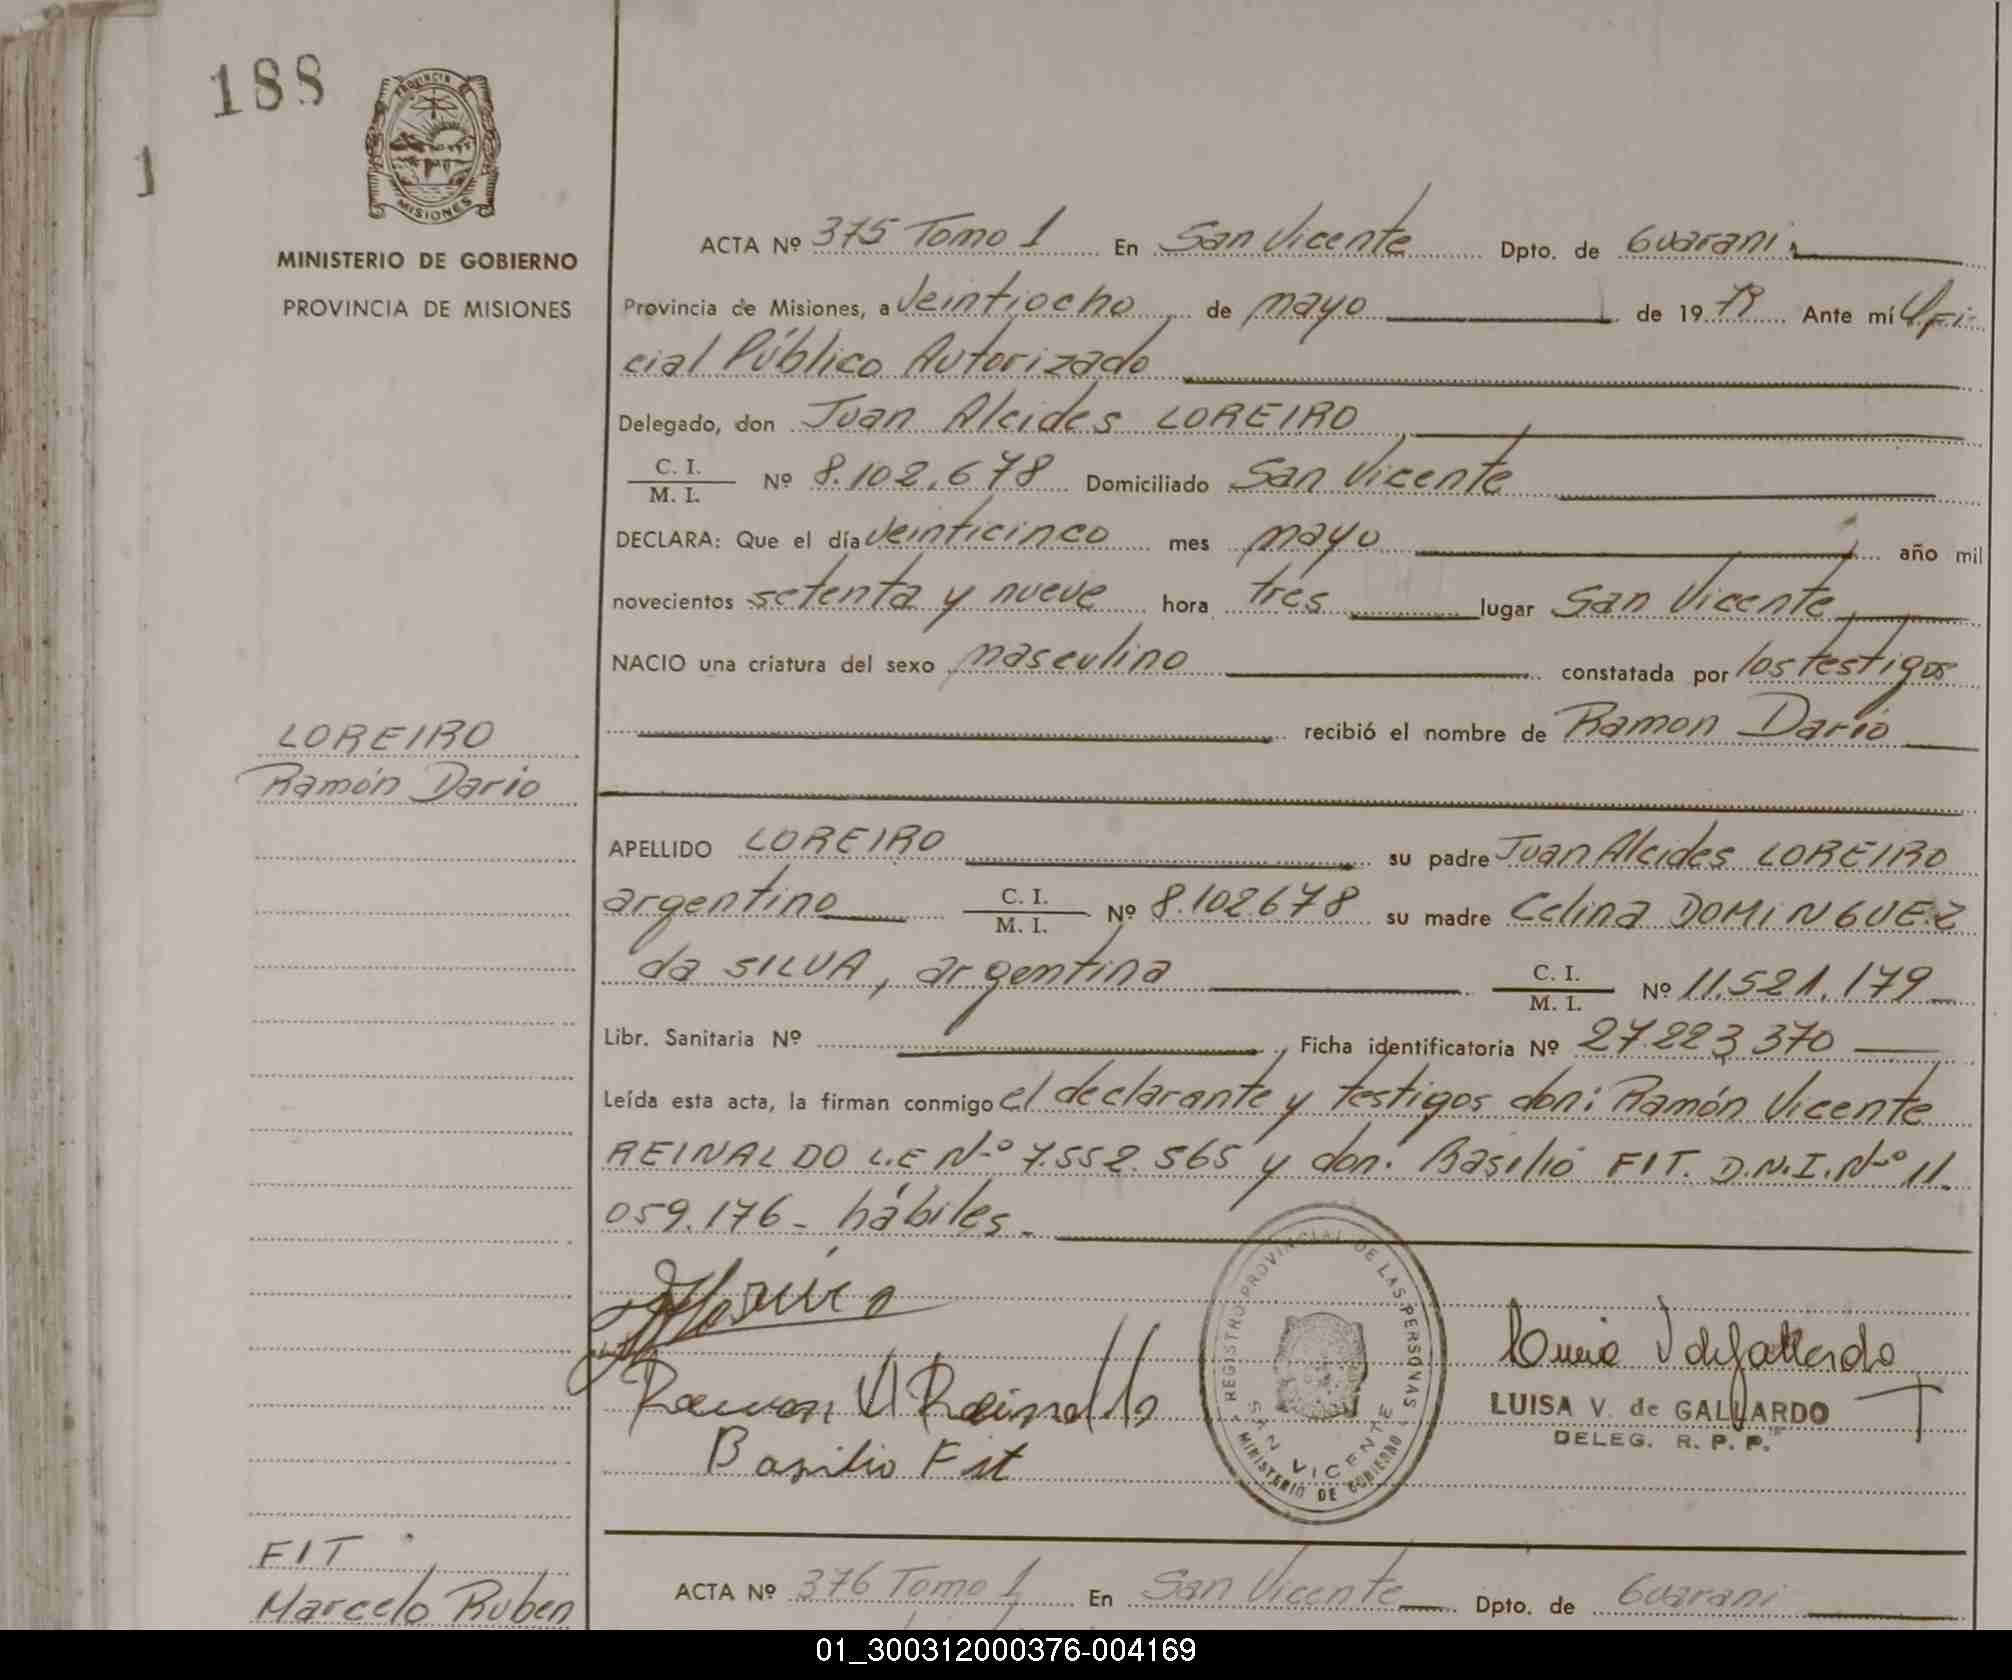 188
1
PROVINCIA DE
MISIONES
MINISTERIO DE GOBIERNO
PROVINCIA DE MISIONES
ACTA Nº 375 Tomo 1 En San Vicente Dpto. de Guarani
Provincia de Misiones, a veintiocho de mayo de 1979 Ante mí Ofi-
cial Público Autorizado
Delegado, don Juan Alcides LOREIRO
C. I.
M. I. Nº 8.102.678 Domiciliado San Vicente
DECLARA: Que el día veinticinco mes mayo año mil
novecientos setenta y nueve hora tres lugar San Vicente
NACIO una criatura del sexo masculino constatada por los testigos
recibió el nombre de Ramon Dario
LOREIRO
Ramón Dario
APELLIDO LOREIRO su padre Juan Alcides LOREIRO
argentino C. I. M. I. Nº 8.102678 su madre Celina DOMINGUEZ
da SILVA, argentina C. I. M. I. Nº 11.521.179
Libr. Sanitaria Nº Ficha identificatoria Nº 27.223.370
Leída esta acta, la firman conmigo el declarante y testigos don: Ramón Vicente
REINALDO L.E Nº 7.552.565 y don: Basilio FIT. D.N.I. Nº 11.
059.176- hábiles-
Ramon V Reinaldo
Basilio Fit
REGISTRO PROVINCIAL DE LAS PERSONAS
SAN VICENTE
MINISTERIO DE GOBIERNO
LUISA V. de GALLARDO
DELEG. R. P. P.
FIT
Marcelo Ruben
ACTA Nº 376 Tomo 1 En San Vicente Dpto. de Guarani
01_300312000376-004169